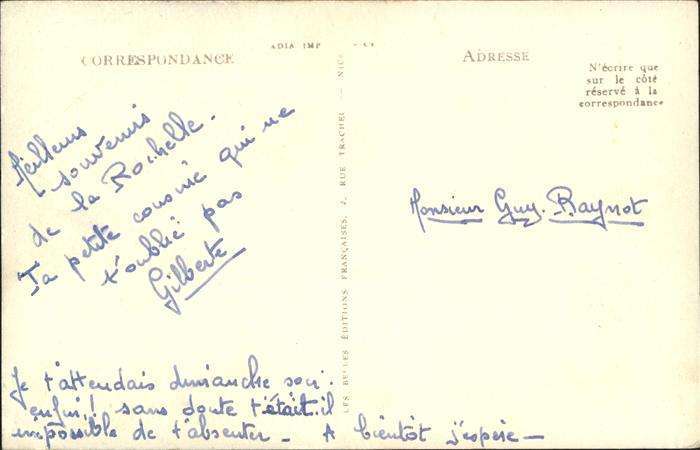 CORRESPONDANCE
ADIA IMP
ADRESSE
N'écrire que
sur le côté
réservé à la
correspondance
LES BELLES ÉDITIONS FRANÇAISES, 2, RUE TRACHEL — NICE
Meilleurs
souvenirs
de la Rochelle.
Ta petite cousine qui ne
t'oublie pas
Gilberte
Monsieur Guy. Raynot
Je t'attendais dimanche soir.
enfin! sans doute t'était.il
impossible de t'absenter_ A bientôt j'espère_